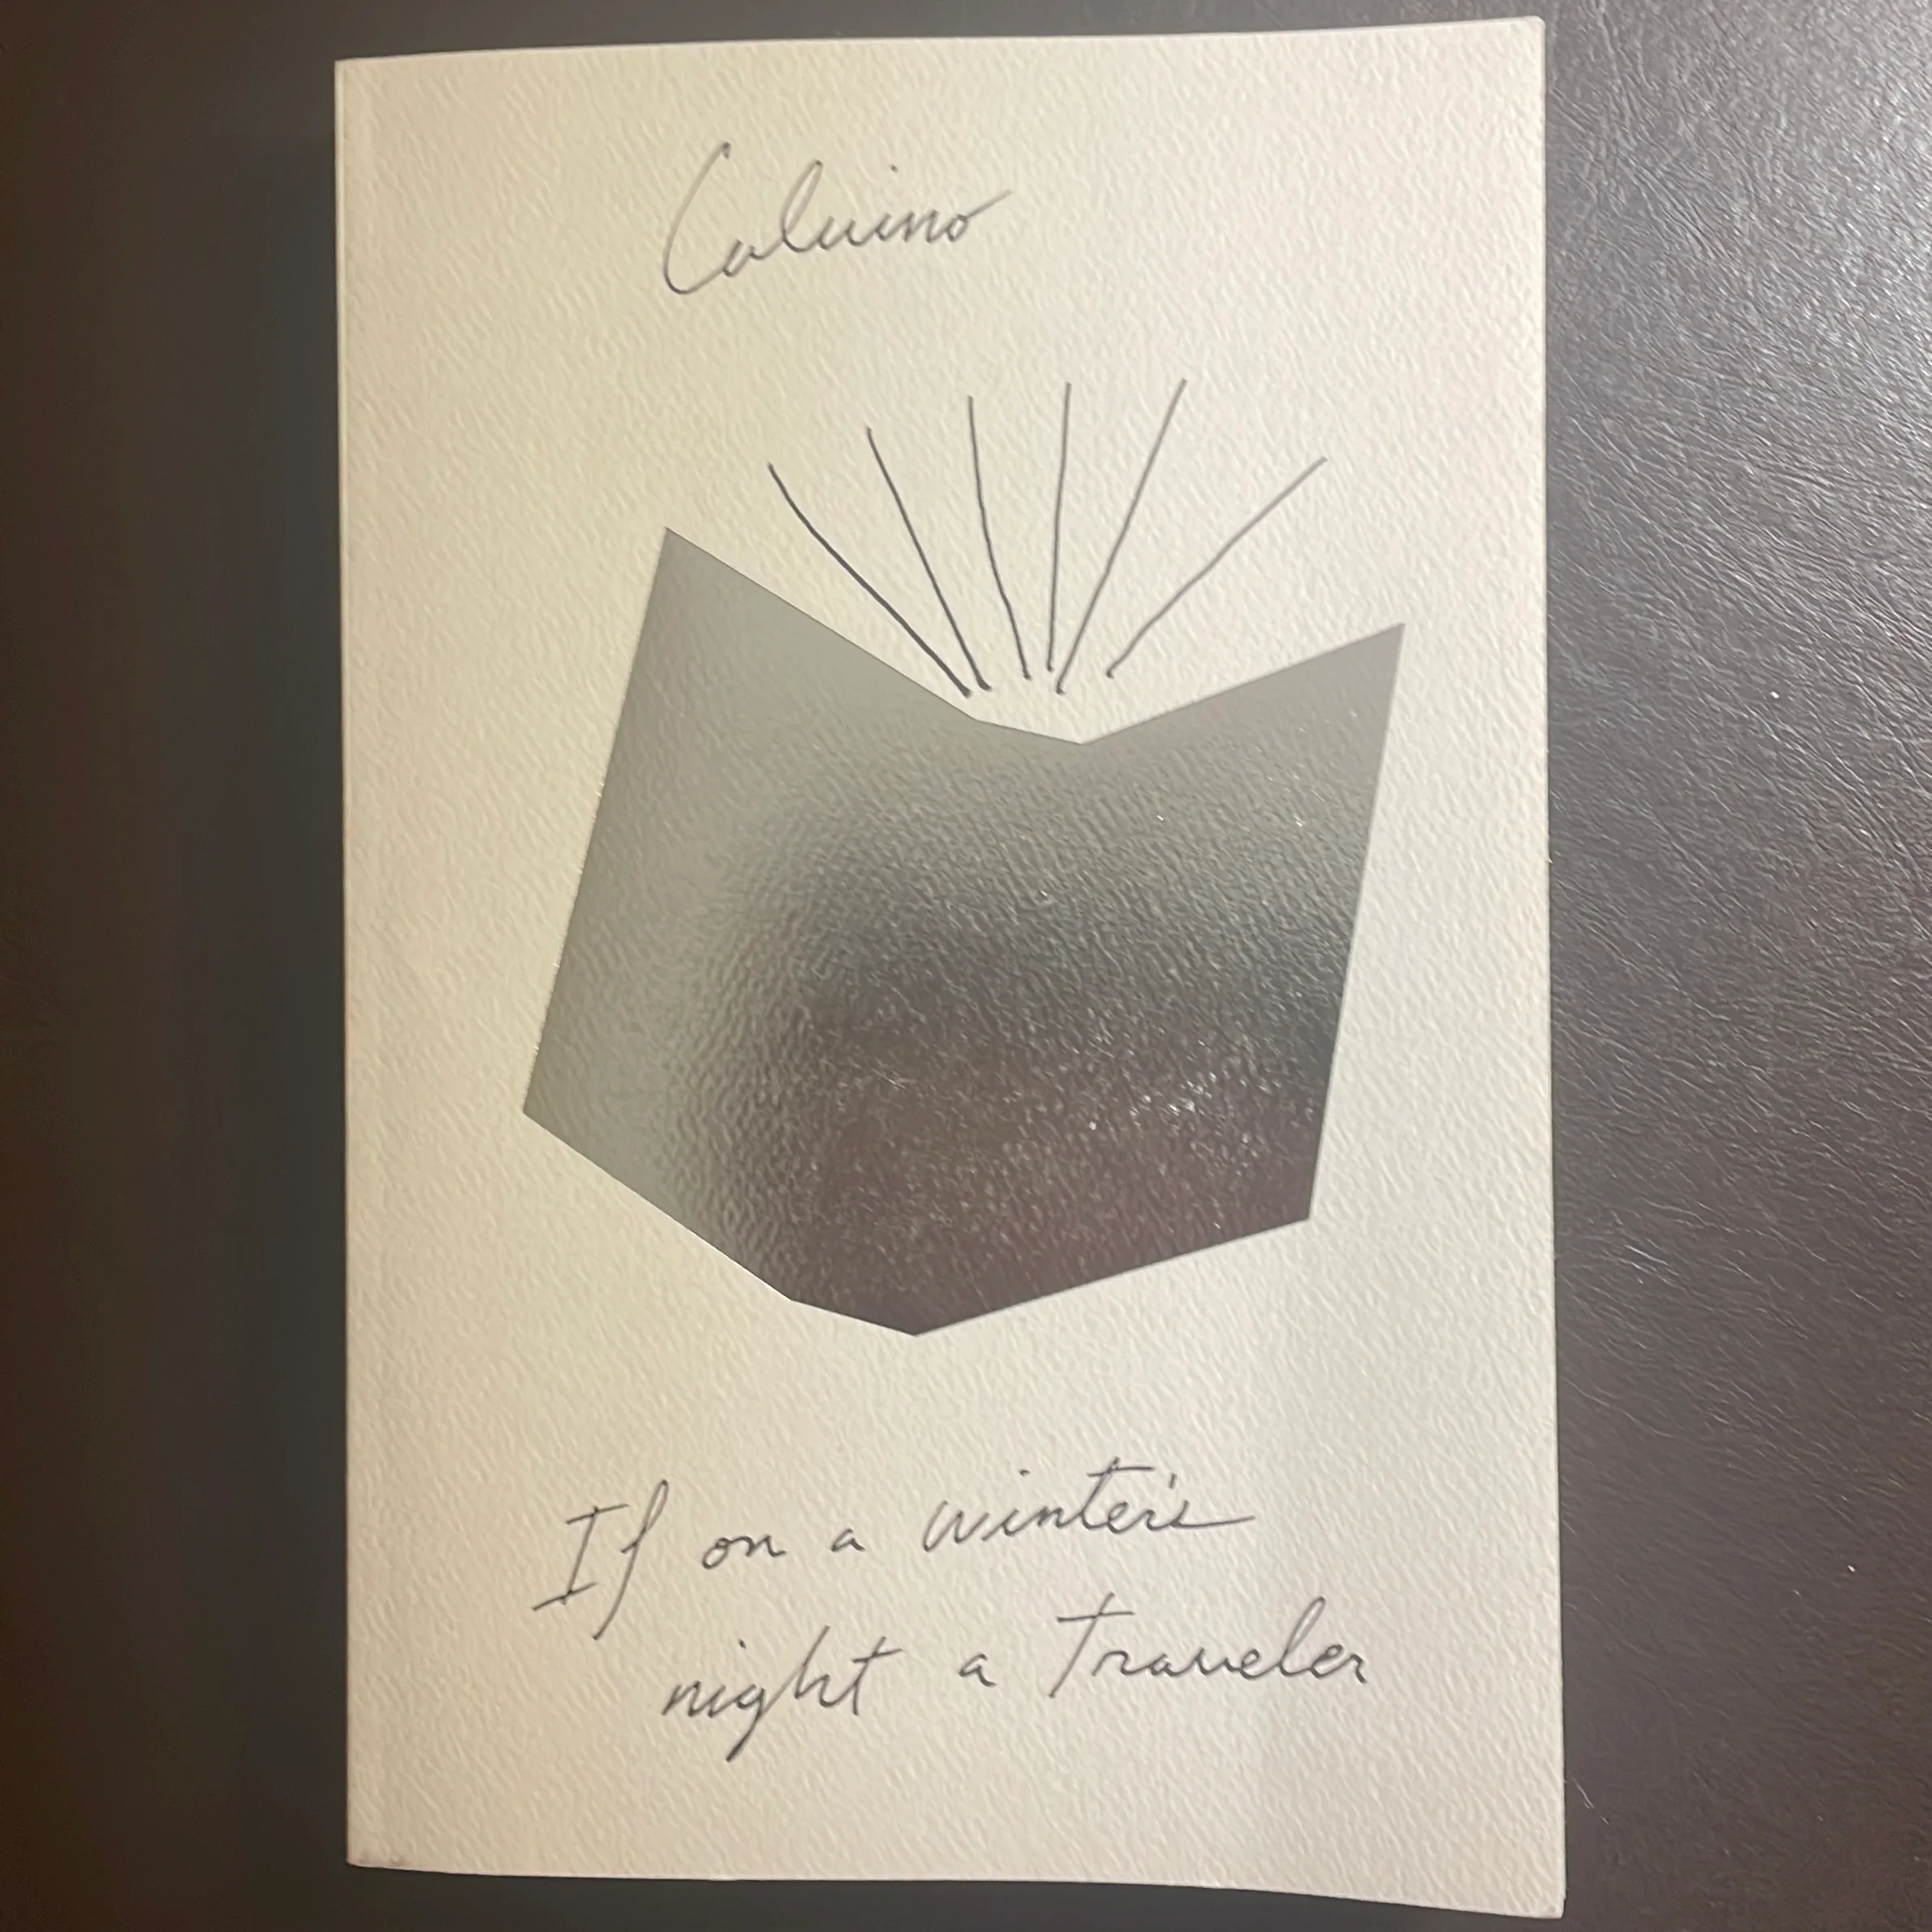 Calvino
If on a winter's
night a traveler